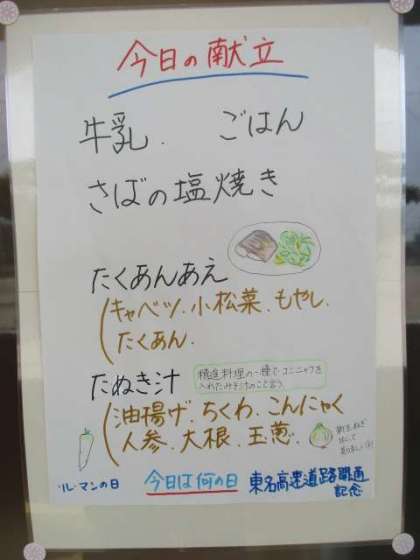 今日の献立
牛乳. ごはん
さばの塩焼き
たくあんあえ
(キャベツ.小松菜.もやし.
たくあん.
たぬき汁
精進料理の一種で コンニャクを
入れたみそ汁のこと言う。
(油揚げ.ちくわ.こんにゃく
人参.大根.玉葱.
今日は何の日
東名高速道路開通
記念
ル・マンの日